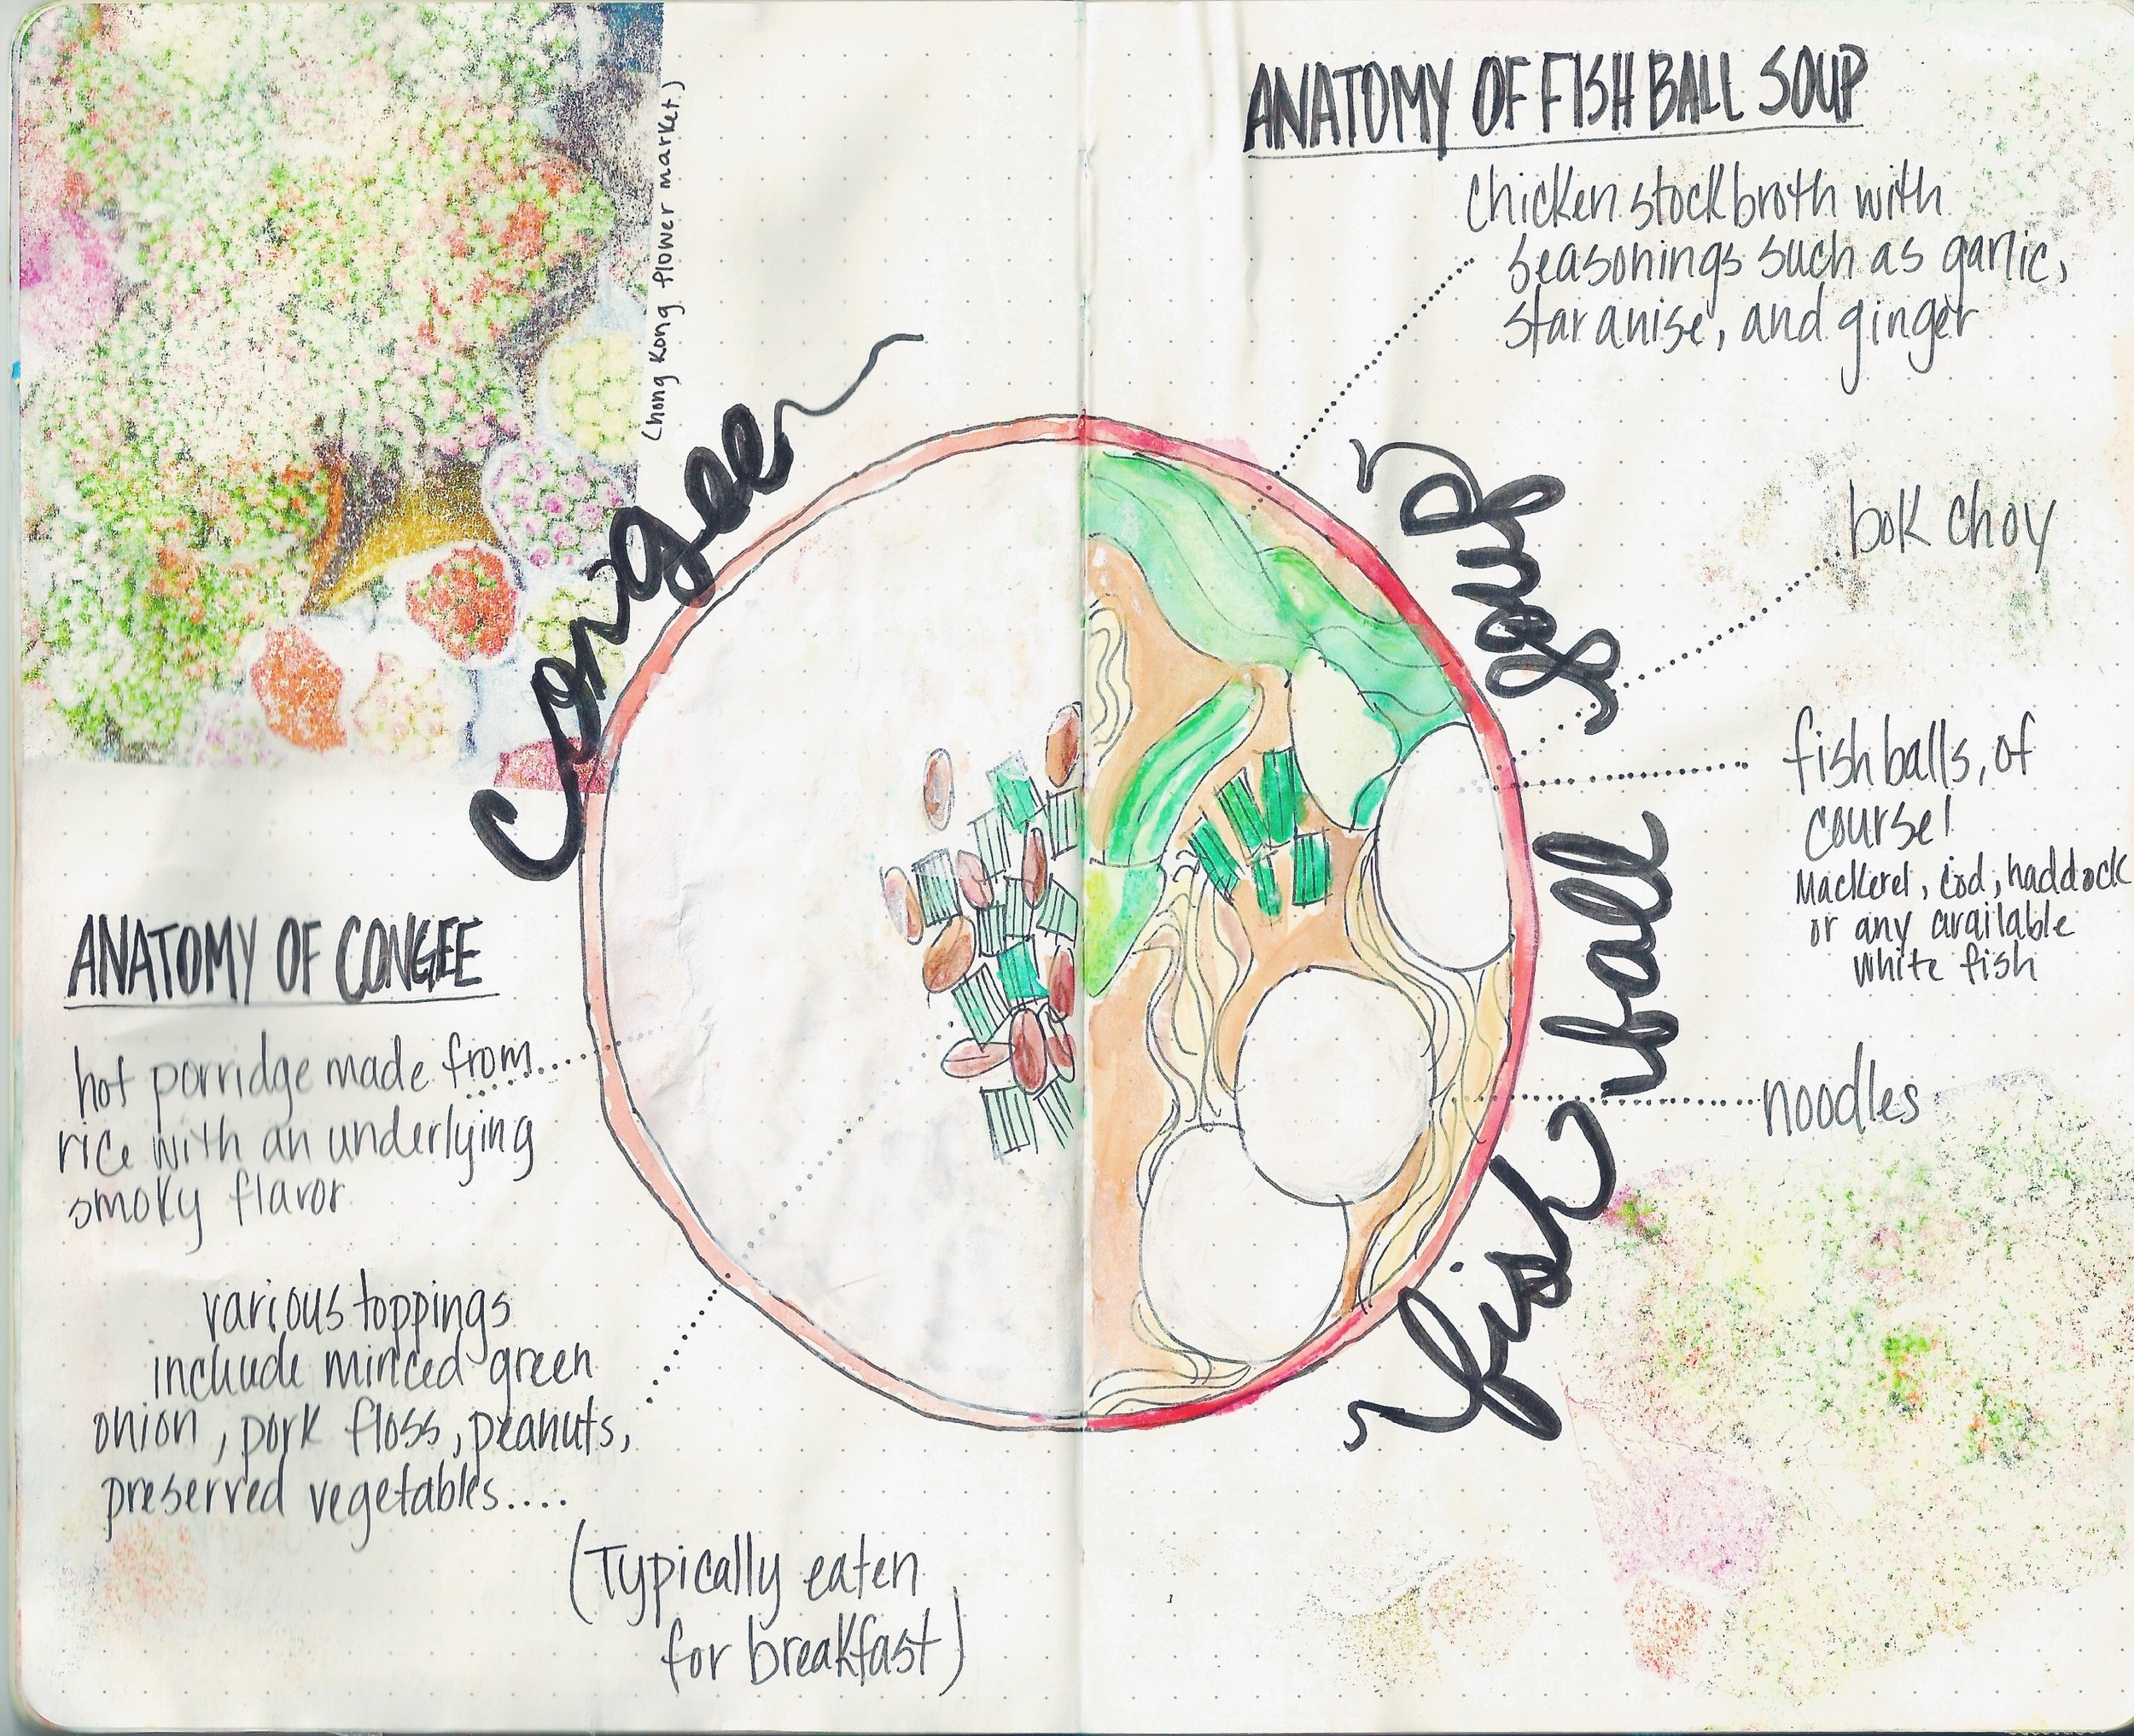 (hong kong flower market)
Congee
ANATOMY OF CONGEE
hot porridge made from
rice with an underlying
smoky flavor
various toppings
include minced green
onion, pork floss, peanuts,
preserved vegetables....
(Typically eaten
for breakfast)
ANATOMY OF FISH BALL SOUP
chicken stock broth with
seasonings such as garlic,
star anise, and ginger
bok choy
fish balls, of
course!
Mackerel, cod, haddock
or any available
white fish
noodles
fish ball soup